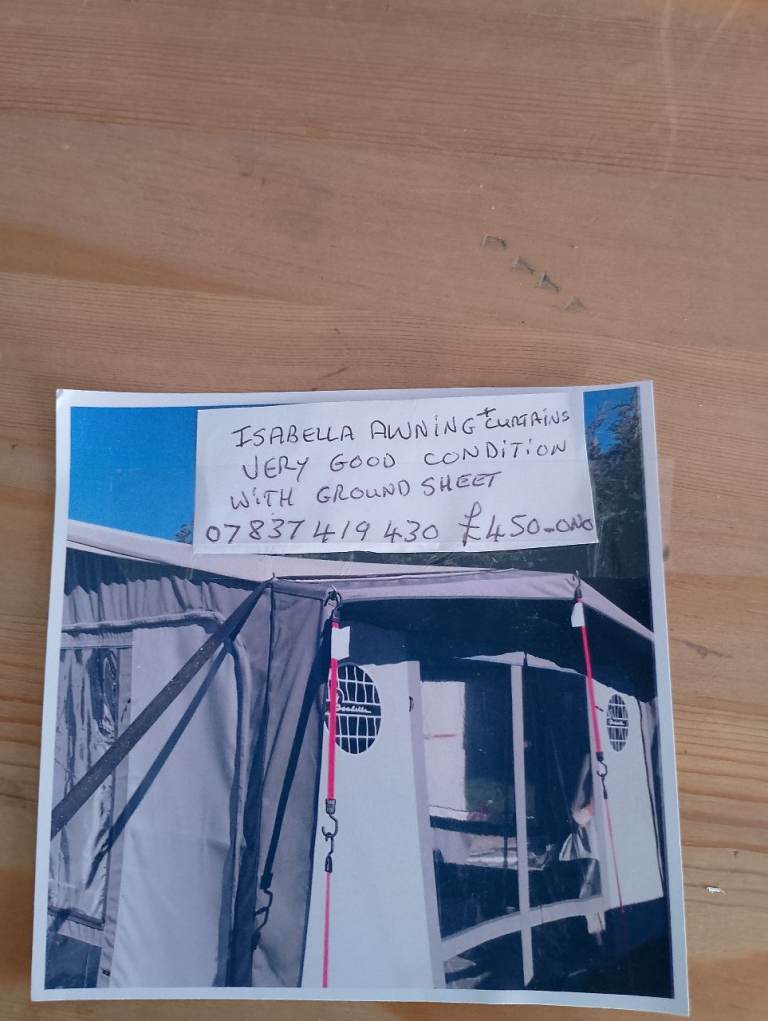 ISABELLA AWNING + CURTAINS
VERY GOOD CONDITION
WITH GROUND SHEET
07837 419 430 £450-ONO
Isabella